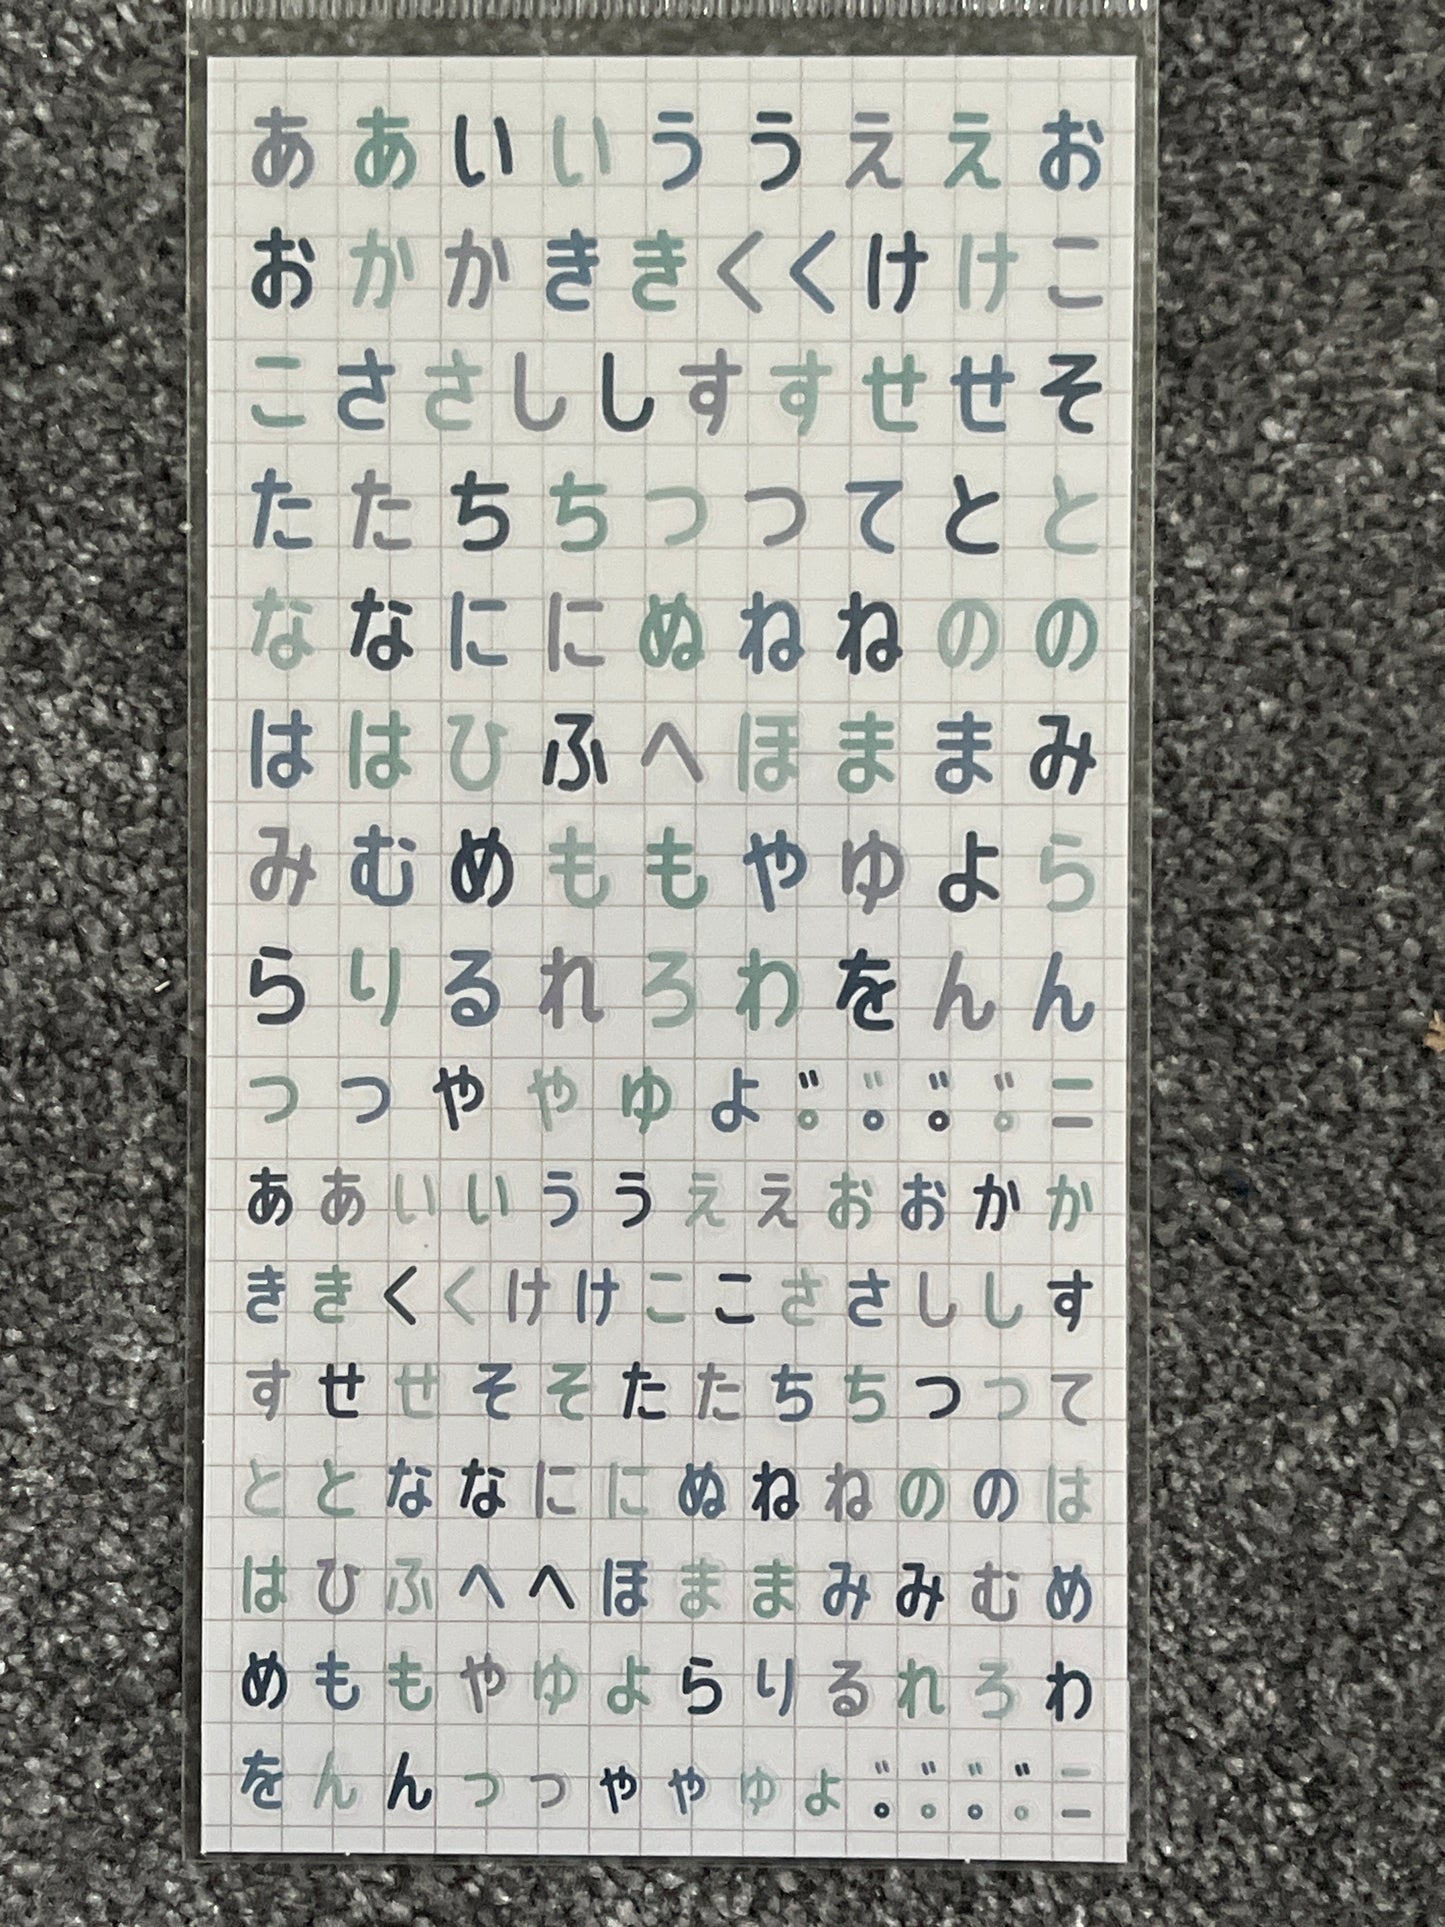 ああいいううええお
おかかききくくけけこ
こささししすすせせそ
たたちちつつてとと
ななににぬねねのの
ははひふへほままみ
みむめももやゆよら
らりるれろわをんん
っっゃゃゅょ゛゜゛゜゛゜゛゜ーー
ああいいううええおおかか
ききくくけけこここささししす
すせせそそたたちちつつて
ととななににぬねねののは
はひふへへほままみみむめ
めももやゆよらりるれろわ
をんんっっゃゃゅょ゛゜゛゜゛゜゛゜ーー